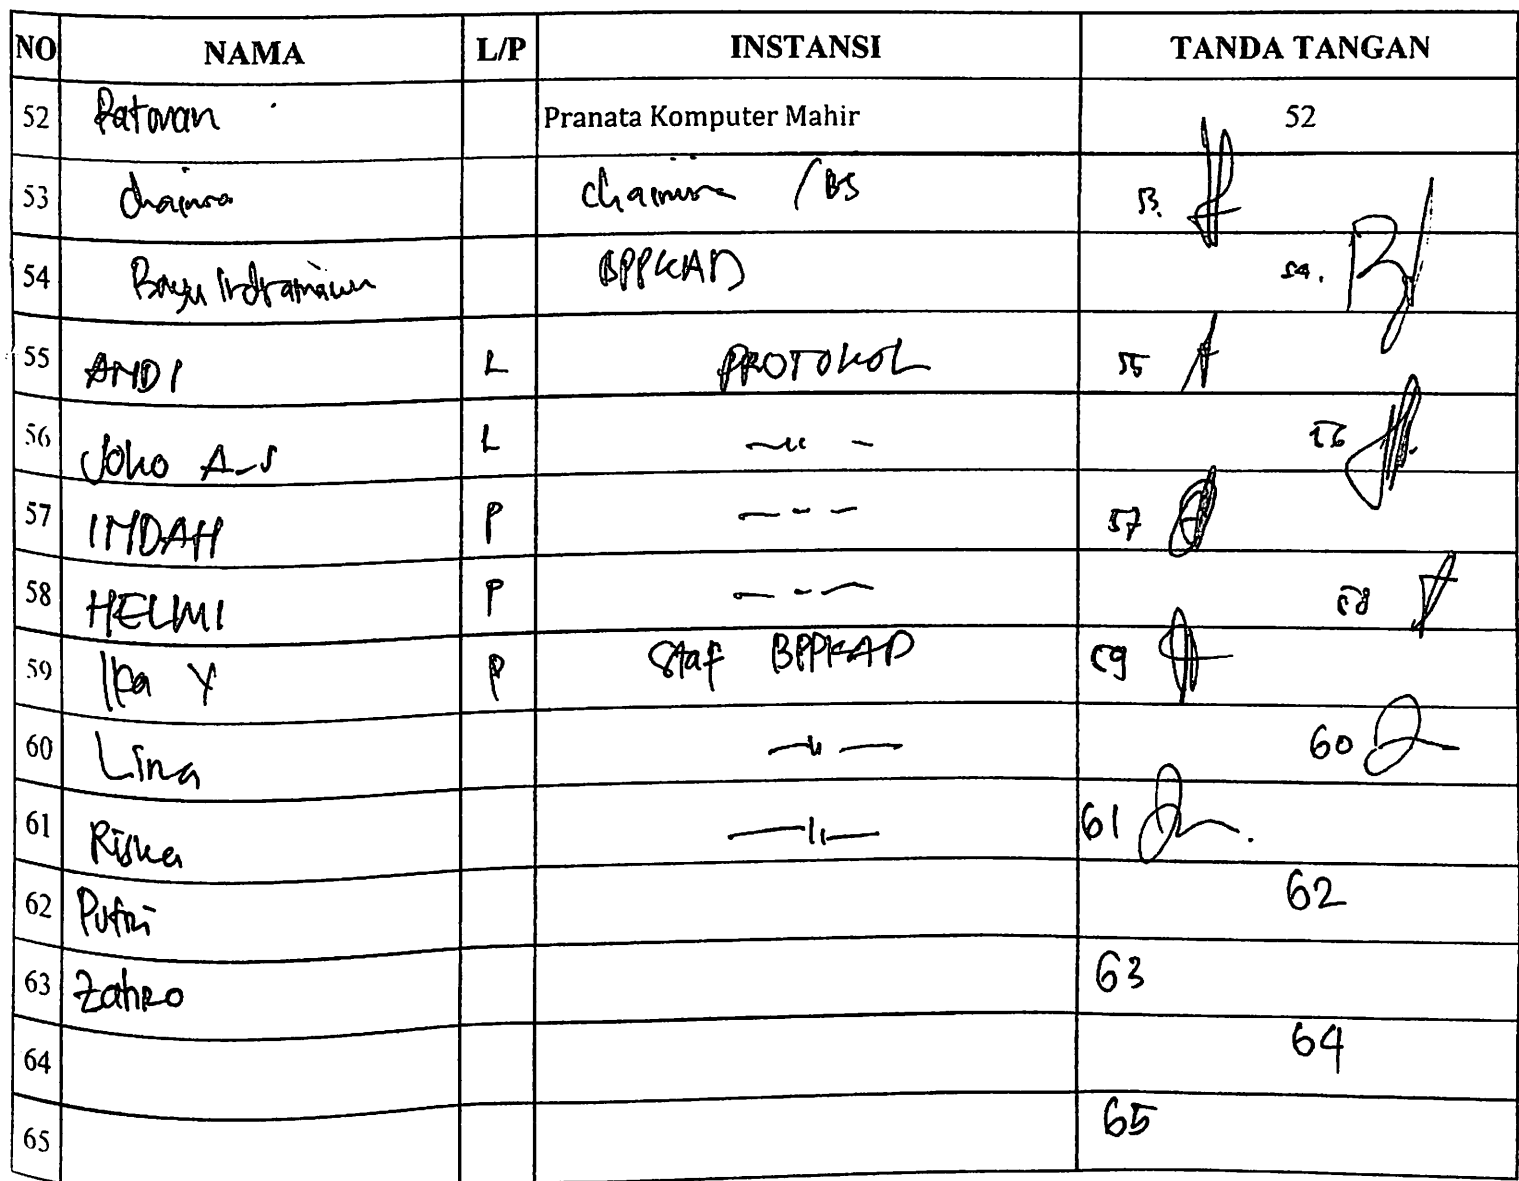 NO NAMA L/P INSTANSI TANDA TANGAN
52 Ratovan Pranata Komputer Mahir 52
53 chainra 53.
54 Bayu Indramawan BPPKAD 54.
55 ANDI L PROTOKOL 55
56 JOKO A-S L — 〃 — 56
57 INDAH P — 〃 — 57
58 HELMI P — 〃 — 58
59 Ika Y P Staf BPPKAD 59
60 Lina — 〃 — 60
61 Riska — 〃 — 61
62 Putri 62
63 Zahro 63
64 64
65 65